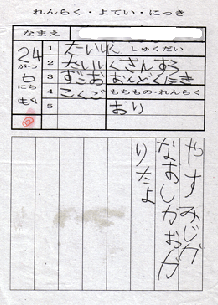 れんらく・よてい・にっき
なまえ
24
がつ
にち
1
しゅくだい
2
たいいくさんすう
3
ずこおおんどくたき
4
こんご
もちもの・れんらく
5
おり
やすみじか
なおしかおが
りたよ